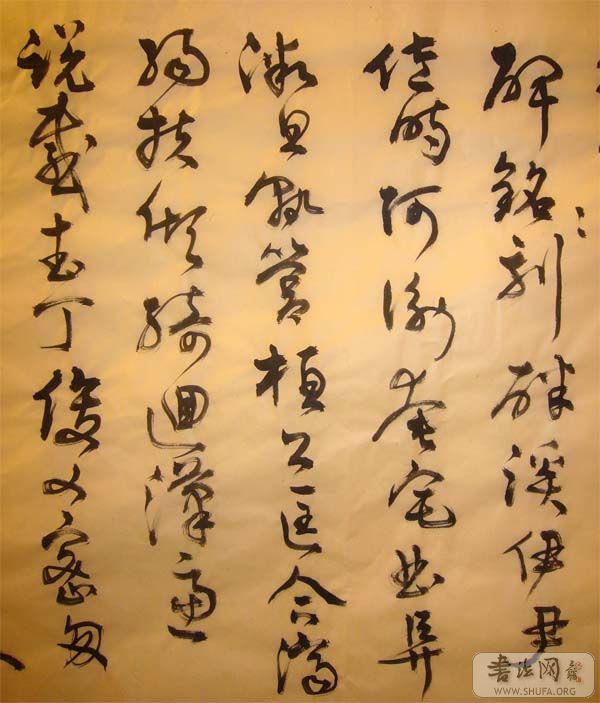 碑銘刻磻溪伊尹
佐時阿衡奄宅曲阜
微旦孰營桓公匡合濟
弱扶傾綺迴漢惠
說感武丁俊乂密勿
書法网
WWW.SHUFA.ORG